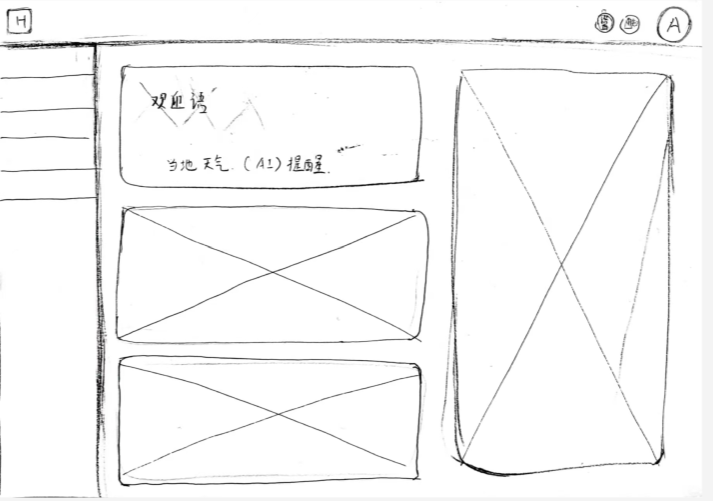 H
A
欢迎语
当地天气.(AI)提醒.